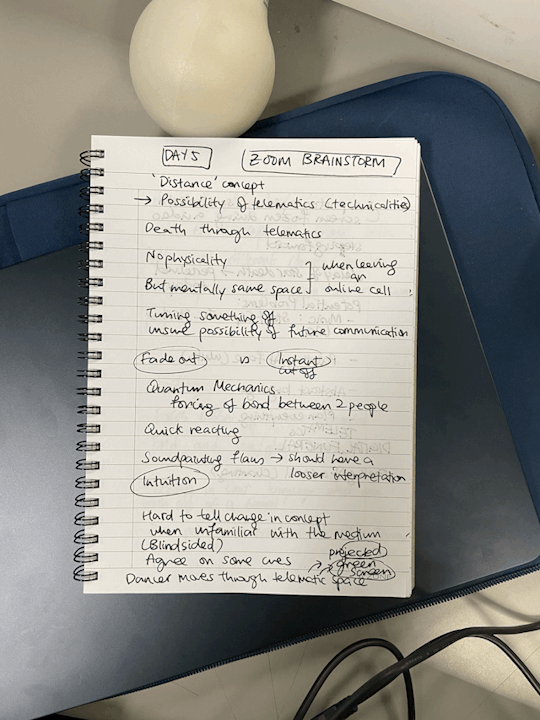 DAY 5 ZOOM BRAINSTORM
'Distance' concept
→ Possibility of telematics (technicalities)
Death through telematics
No physicality
But mentally same space
when leaving
an
online call
Turning something off
unsure possibility of future communication
Fade out vs Instant
cut off
Quantum Mechanics
forcing of bond between 2 people
Quick reacting
Soundpainting flaws → should have a
looser interpretation
Intuition
Hard to tell change in concept
when unfamiliar with the medium
(Blindsided)
Agree on some cues
projected
green
screen
Dancer moves through telematic space